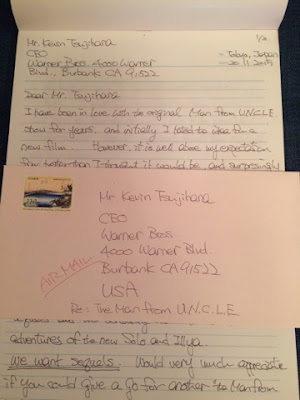 1/2
Mr. Kevin Tsujihara
CEO Tokyo, Japan
Warner Bros. 4000 Warner
Blvd., Burbank CA 91522
Dear Mr. Tsujihara
I have been in love with the original Man from U.N.C.L.E
show for years, and initially I hated to idea for a
new film. However, it is well above my expectation
far better than I thought it would be, and surprisingly
Mr Kevin Tsujihara
CEO
Warner Bros.
4000 Warner Blvd.
Burbank CA 91522
USA
AIR MAIL
Re: The Man from U.N.C.L.E
adventures of the new Solo and Illya.
We want sequels. Would very much appreciate
if you could give a go for another the Man from